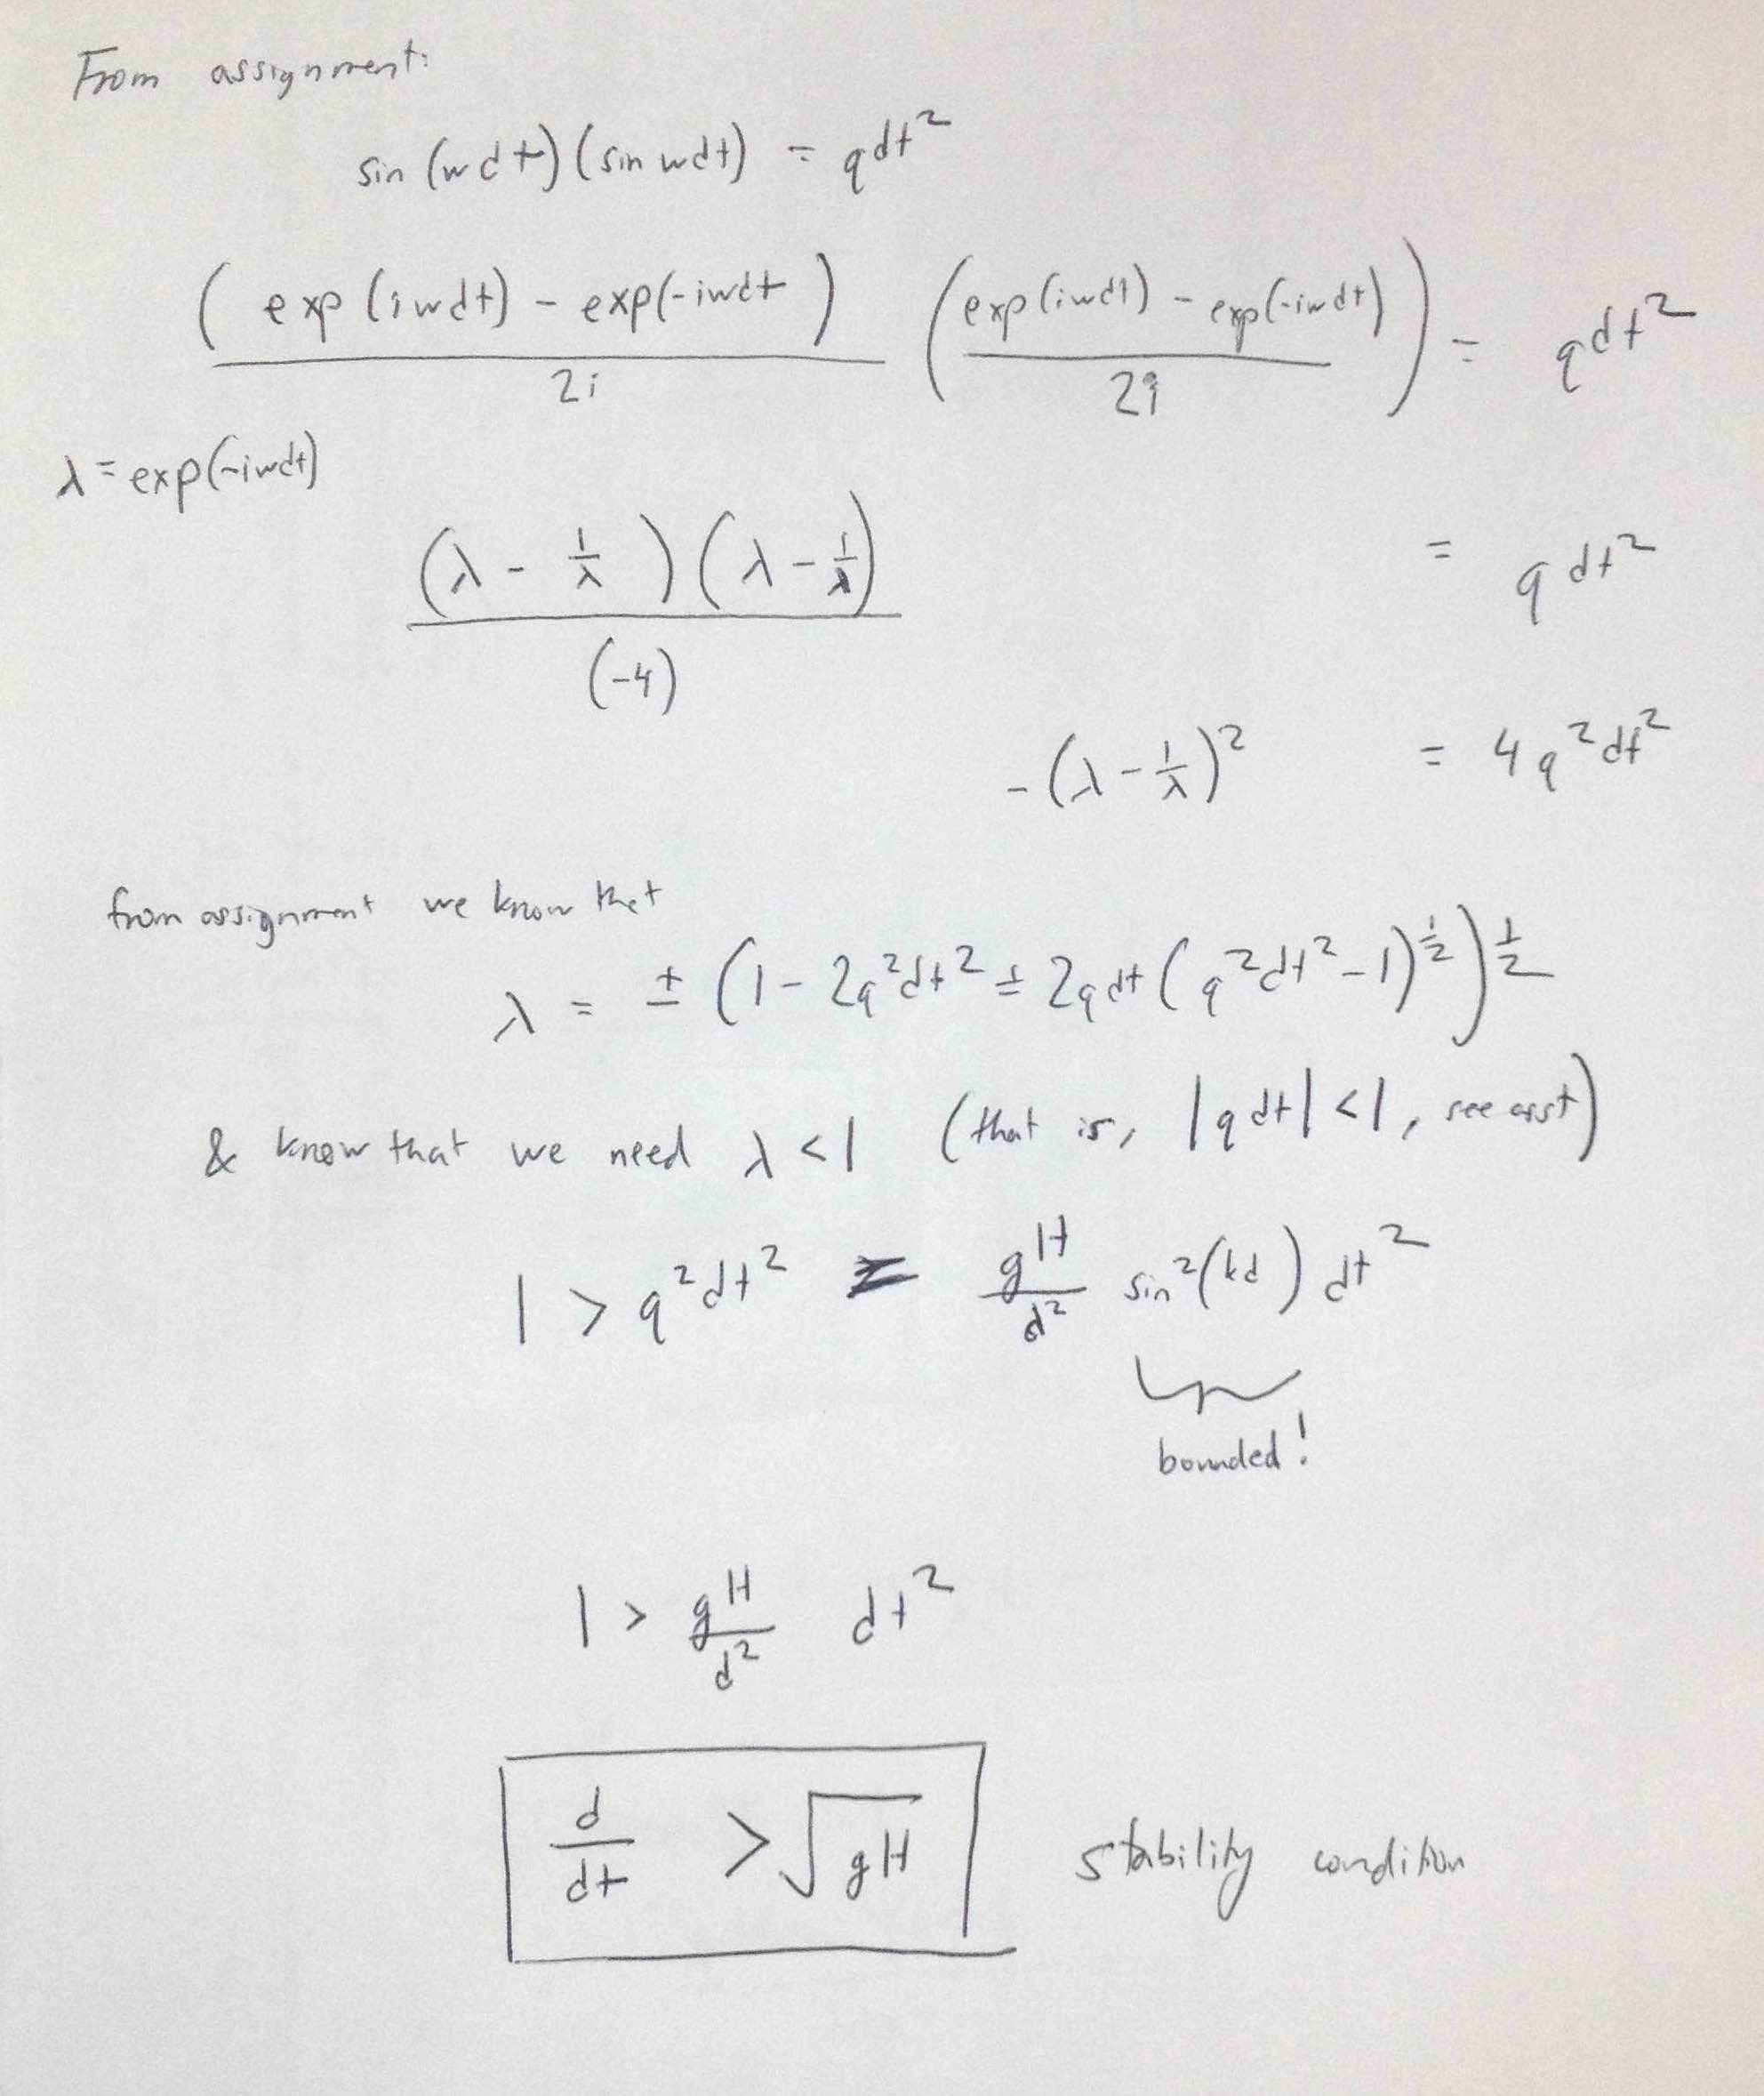 From assignment:
sin (wdt) (sin wdt) = qdt²
( exp (iwdt) - exp(-iwdt ) / 2i ( exp(iwdt) - exp(-iwdt) / 2i ) = qdt²
λ = exp(-iwdt)
(λ - 1/λ ) (λ - 1/λ) / (-4) = q dt²
- (λ - 1/λ)² = 4 q² dt²
from assignment we know that
λ = ± (1 - 2q²dt² ± 2q dt ( q²dt² - 1)^½ )^½
& know that we need λ < 1 (that is, |q dt| < 1, see asst)
1 > q²dt² = gH/d² sin²(kd) dt²
bounded!
1 > gH/d² dt²
d/dt > √gH stability condition